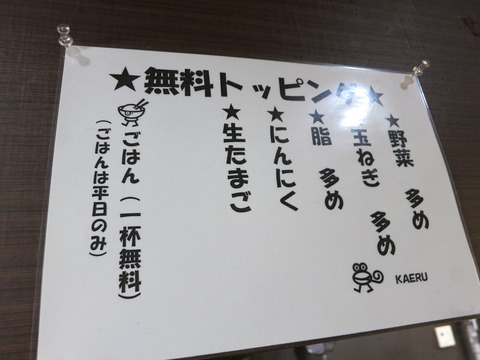 ★無料トッピング★
★野菜 多め
★玉ねぎ 多め
★脂 多め
★にんにく
★生たまご
ごはん(一杯無料)
(ごはんは平日のみ)
KAERU